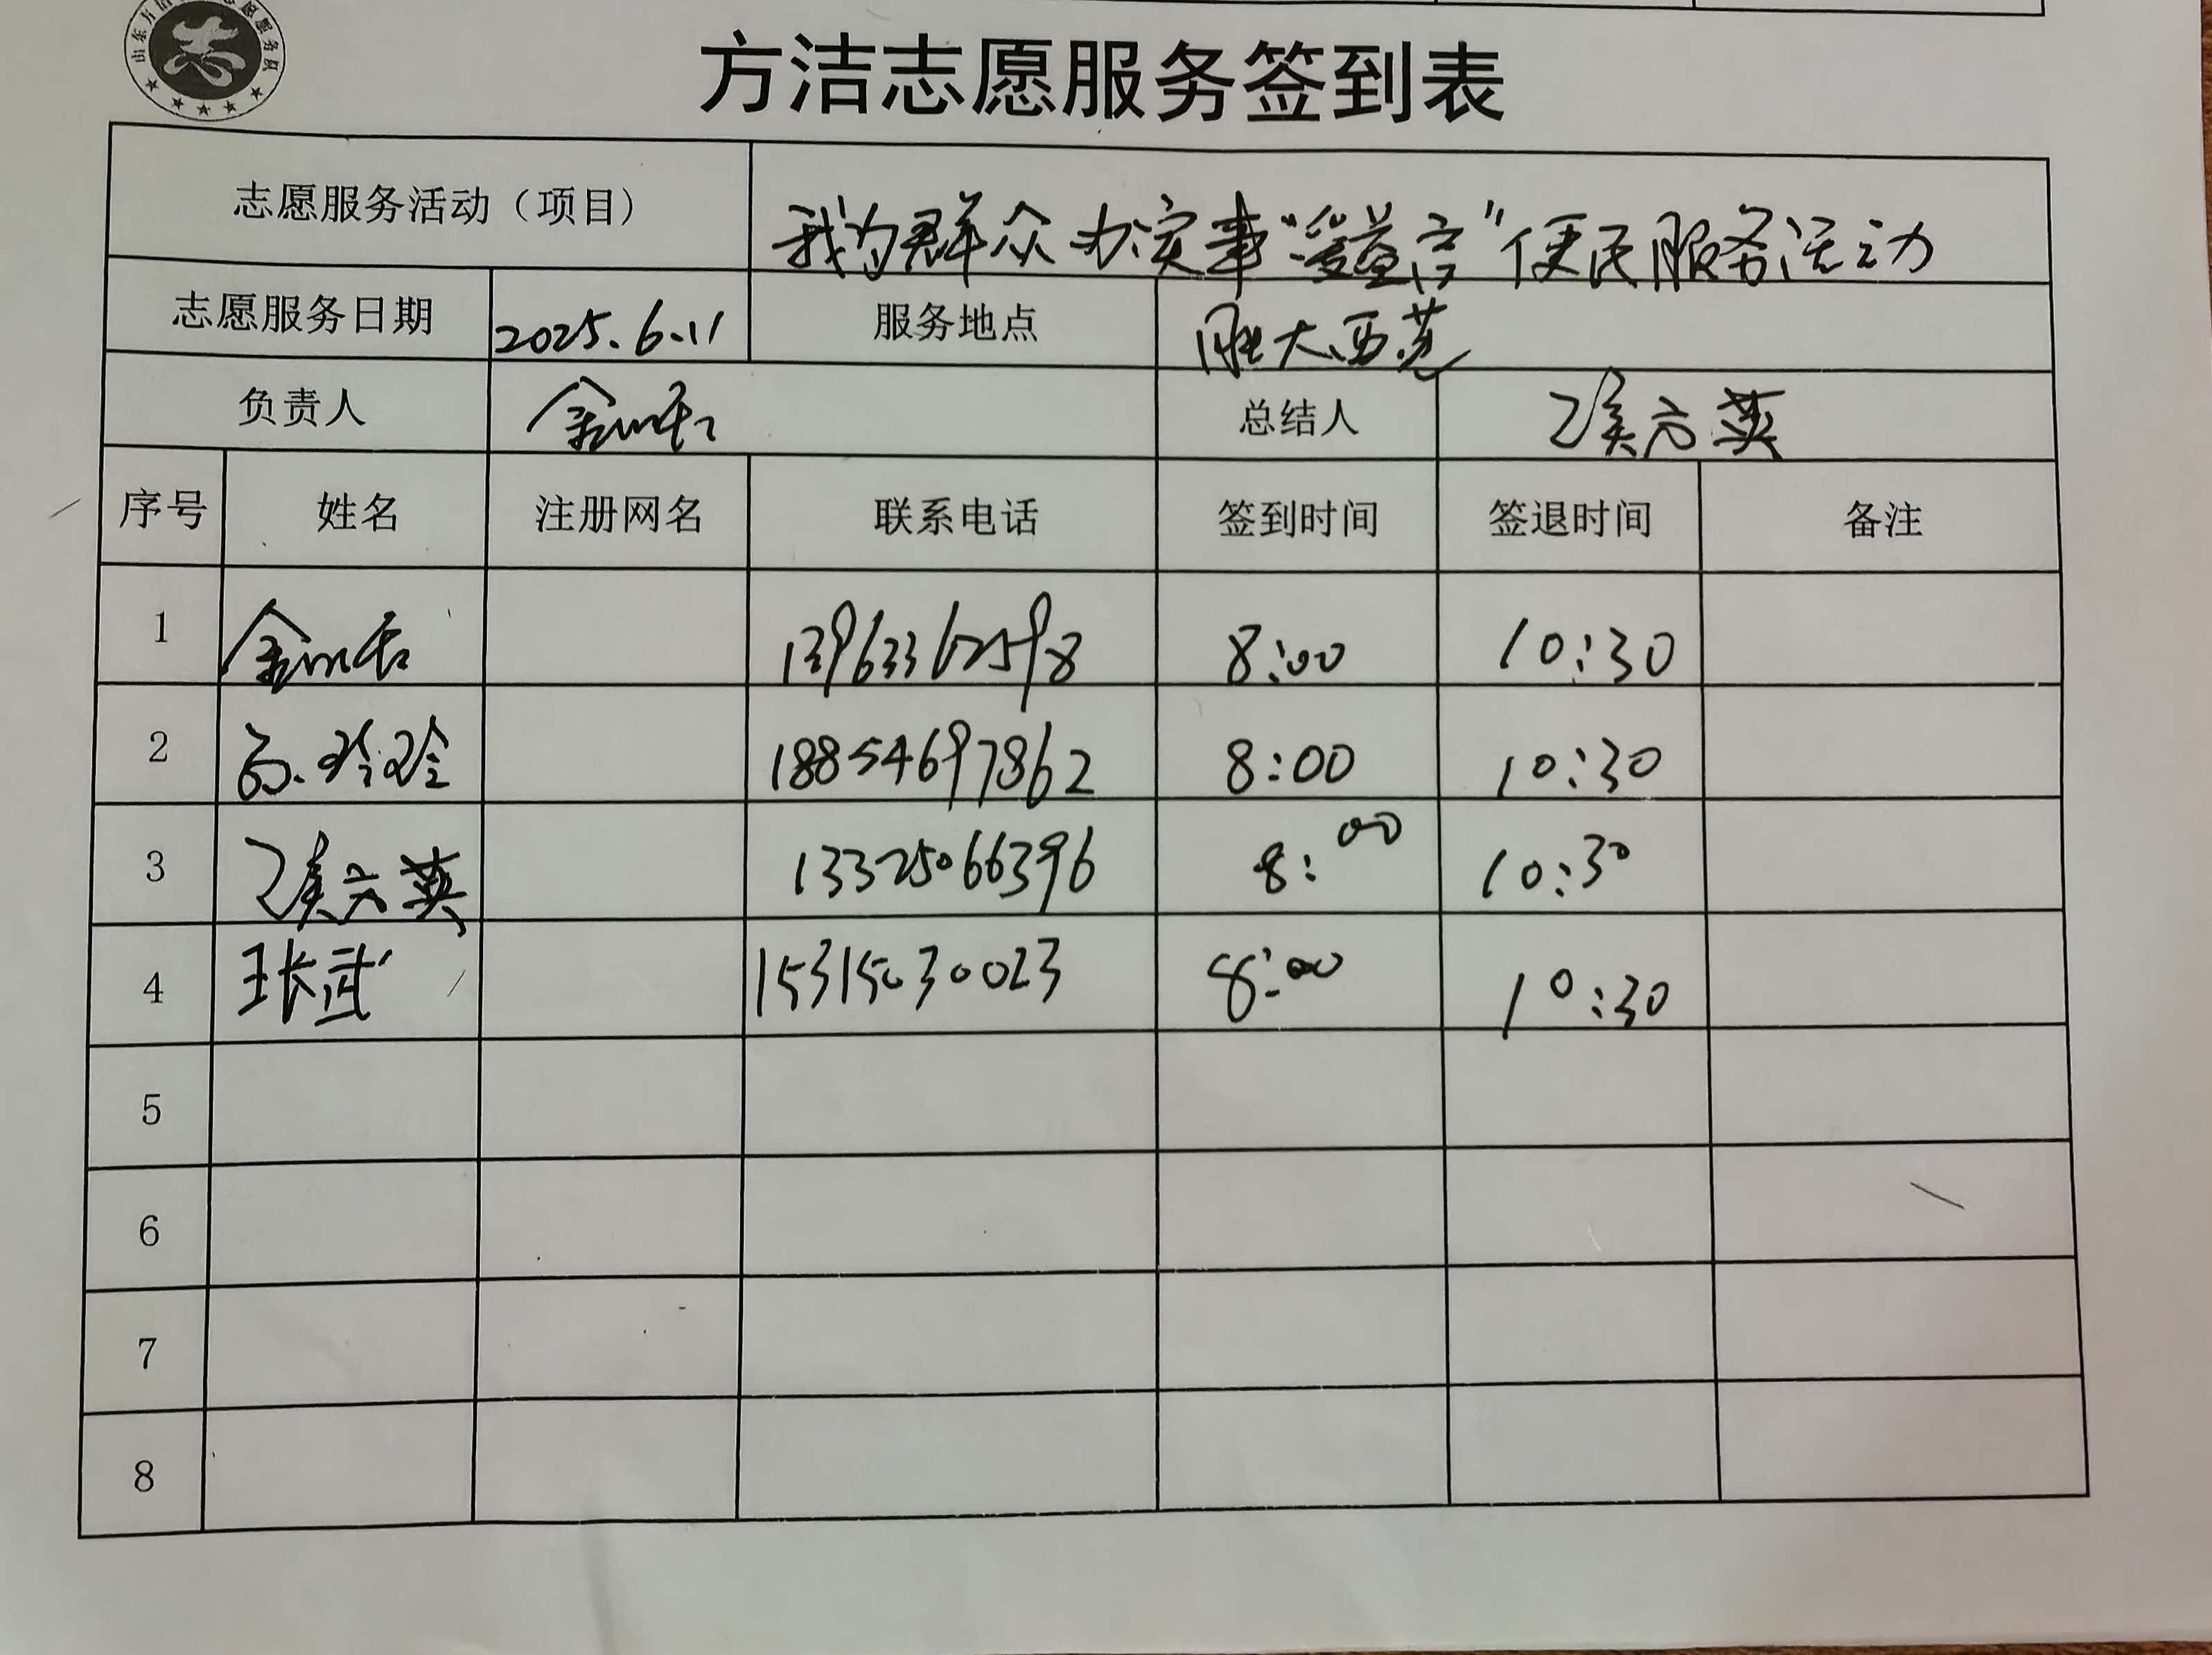 方洁志愿服务签到表
志愿服务活动（项目） 我为群众办实事“爱益站”便民服务活动
志愿服务日期 2025.6.11 服务地点 胜大西苑
负责人 总结人
序号 姓名 注册网名 联系电话 签到时间 签退时间 备注
1 13963362598 8:00 10:30
2 18854697862 8:00 10:30
3 13325066396 8:00 10:30
4 张武 15315030023 8:00 10:30
5
6
7
8